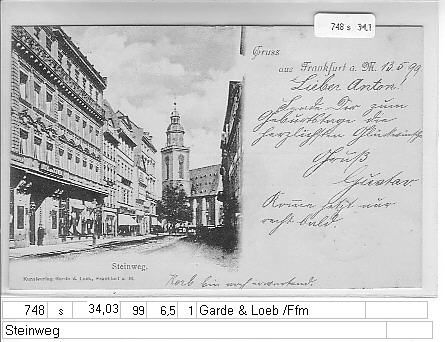 748 s 34,1
Gruss
aus Frankfurt a. M. 13.5 99
Lieber Anton!
Sende Dir zum
Geburtstage die
herzlichsten Glückwünsche
Gruß
Gustav.
Komme jetzt nur
recht bald.
Steinweg.
Kunstverlag Garde & Loeb, Frankfurt a. M.
bin noch
748 s 34,03 99 6,5 1 Garde & Loeb /Ffm
Steinweg